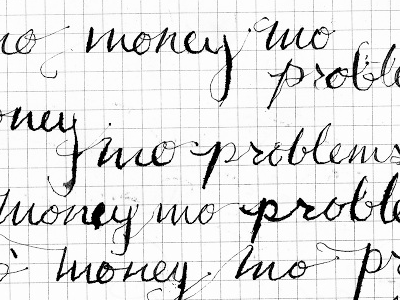 mo money mo
proble
oney
mo problems
money mo proble
money mo pr